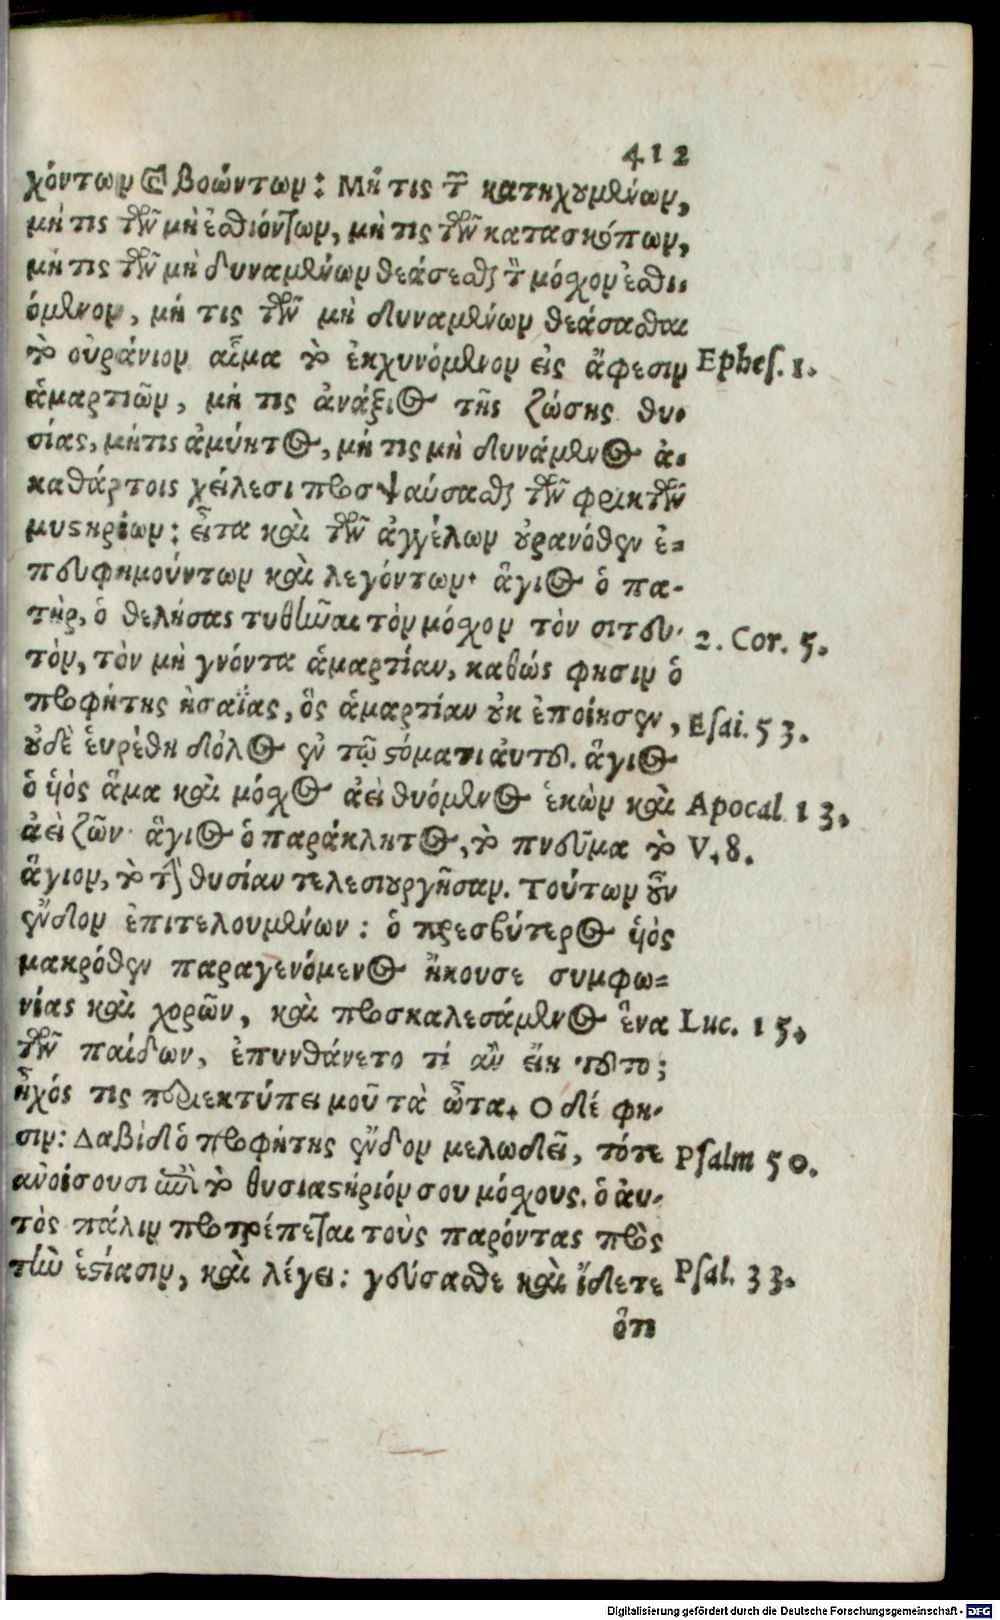 412
χόντων καὶ βοώντων: Μή τις τῶν κατηχουμένων,
μή τις τῶν μὴ ἐσθιόντων, μή τις τῶν κατασκόπων,
μή τις τῶν μὴ δυναμένων θεάσασθαι τὸν μόσχον ἐσθι-
όμενον, μή τις τῶν μὴ δυναμένων θεάσασθαι
τὸ οὐράνιον αἷμα τὸ ἐκχυνόμενον εἰς ἄφεσιν Ephes. 1.
ἁμαρτιῶν, μή τις ἀνάξιος τῆς ζώσης θυ-
σίας, μήτις ἀμύητος, μή τις μὴ δυνάμενος ἀ-
καθάρτοις χείλεσι προσψαύσασθαι τῶν φρικτῶν
μυστηρίων: εἶτα καὶ τῶν ἀγγέλων οὐρανόθεν ἐ-
πευφημούντων καὶ λεγόντων· ἅγιος ὁ πα-
τὴρ, ὁ θελήσας τυθῆναι τὸν μόσχον τὸν σιτευ- 2. Cor. 5.
τὸν, τὸν μὴ γνόντα ἁμαρτίαν, καθώς φησιν ὁ
προφήτης ἡσαΐας, ὃς ἁμαρτίαν οὐκ ἐποίησεν, Esai. 53.
οὐδὲ ἑυρέθη δόλος ἐν τῷ στόματι ἀυτοῦ. ἅγιος
ὁ υἱὸς ἅμα καὶ μόσχος ἀεὶ θυόμενος ἑκὼν καὶ Apocal 13.
ἀεὶ ζῶν· ἅγιος ὁ παράκλητος, τὸ πνεῦμα τὸ V. 8.
ἅγιον, τὸ τὴν θυσίαν τελεσιουργῆσαν. Τούτων οὖν
ἔνδον ἐπιτελουμένων: ὁ πρεσβύτερος υἱὸς
μακρόθεν παραγενόμενος ἤκουσε συμφω-
νίας καὶ χορῶν, καὶ προσκαλεσάμενος ἕνα Luc. 15.
τῶν παίδων, ἐπυνθάνετο τί ἂν εἴη τοῦτο;
ἦχός τις περιεκτύπει μοῦ τὰ ὦτα. Ο δέ φη-
σιν: Δαβὶδ ὁ προφήτης ἔνδον μελωδεῖ, τότε Psalm 50.
ἀνοίσουσι ἐπὶ τὸ θυσιαστήριόν σου μόσχους. ὁ ἀυ-
τὸς πάλιν προτρέπεται τοὺς παρόντας πρὸς
τὴν ἑστίασιν, καὶ λέγει: γεύσασθε καὶ ἴδετε Psal. 33.
ὅτι
Digitalisierung gefördert durch die Deutsche Forschungsgemeinschaft - DFG